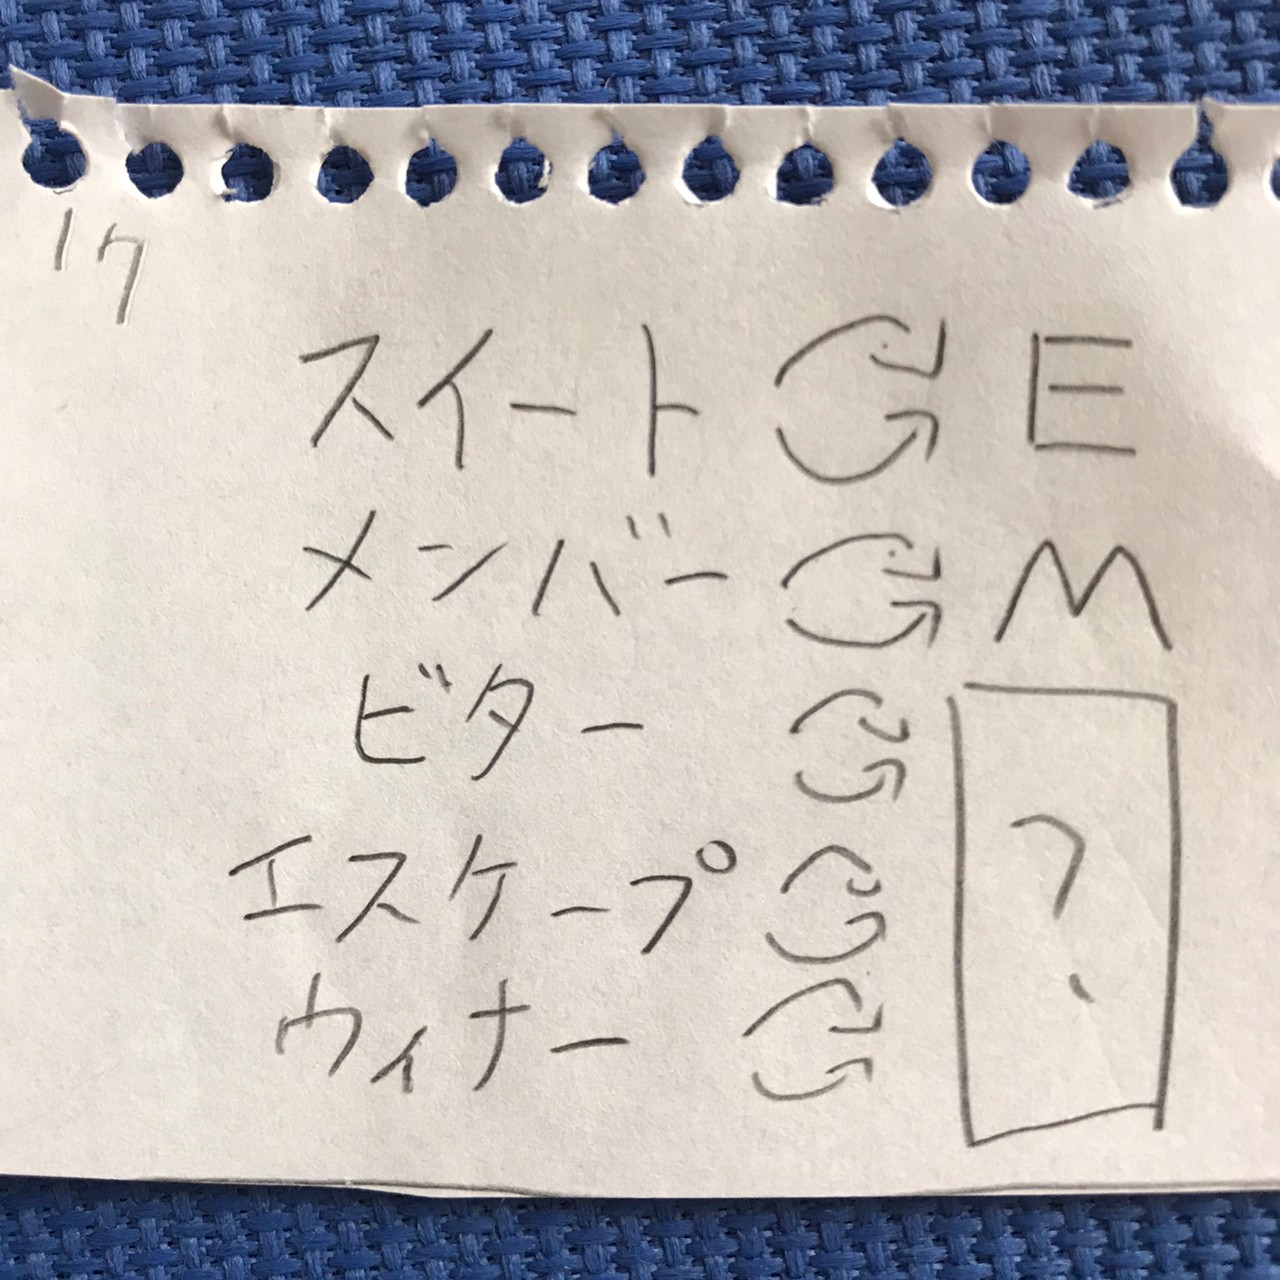 17
スイート E
メンバー M
ビター
エスケープ ?
ウィナー